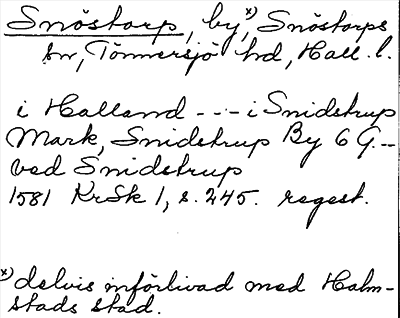 Snöstorp, by,x) Snöstorps
sn, Tönnersjö hd, Hall. l.
i Halland --- i Snidstrup
Mark, Snidstrup By 6 G.--
ved Snidstrup
1581 KrSk 1, s. 245. regest.
x) delvis införlivad med Halm-
stads stad.